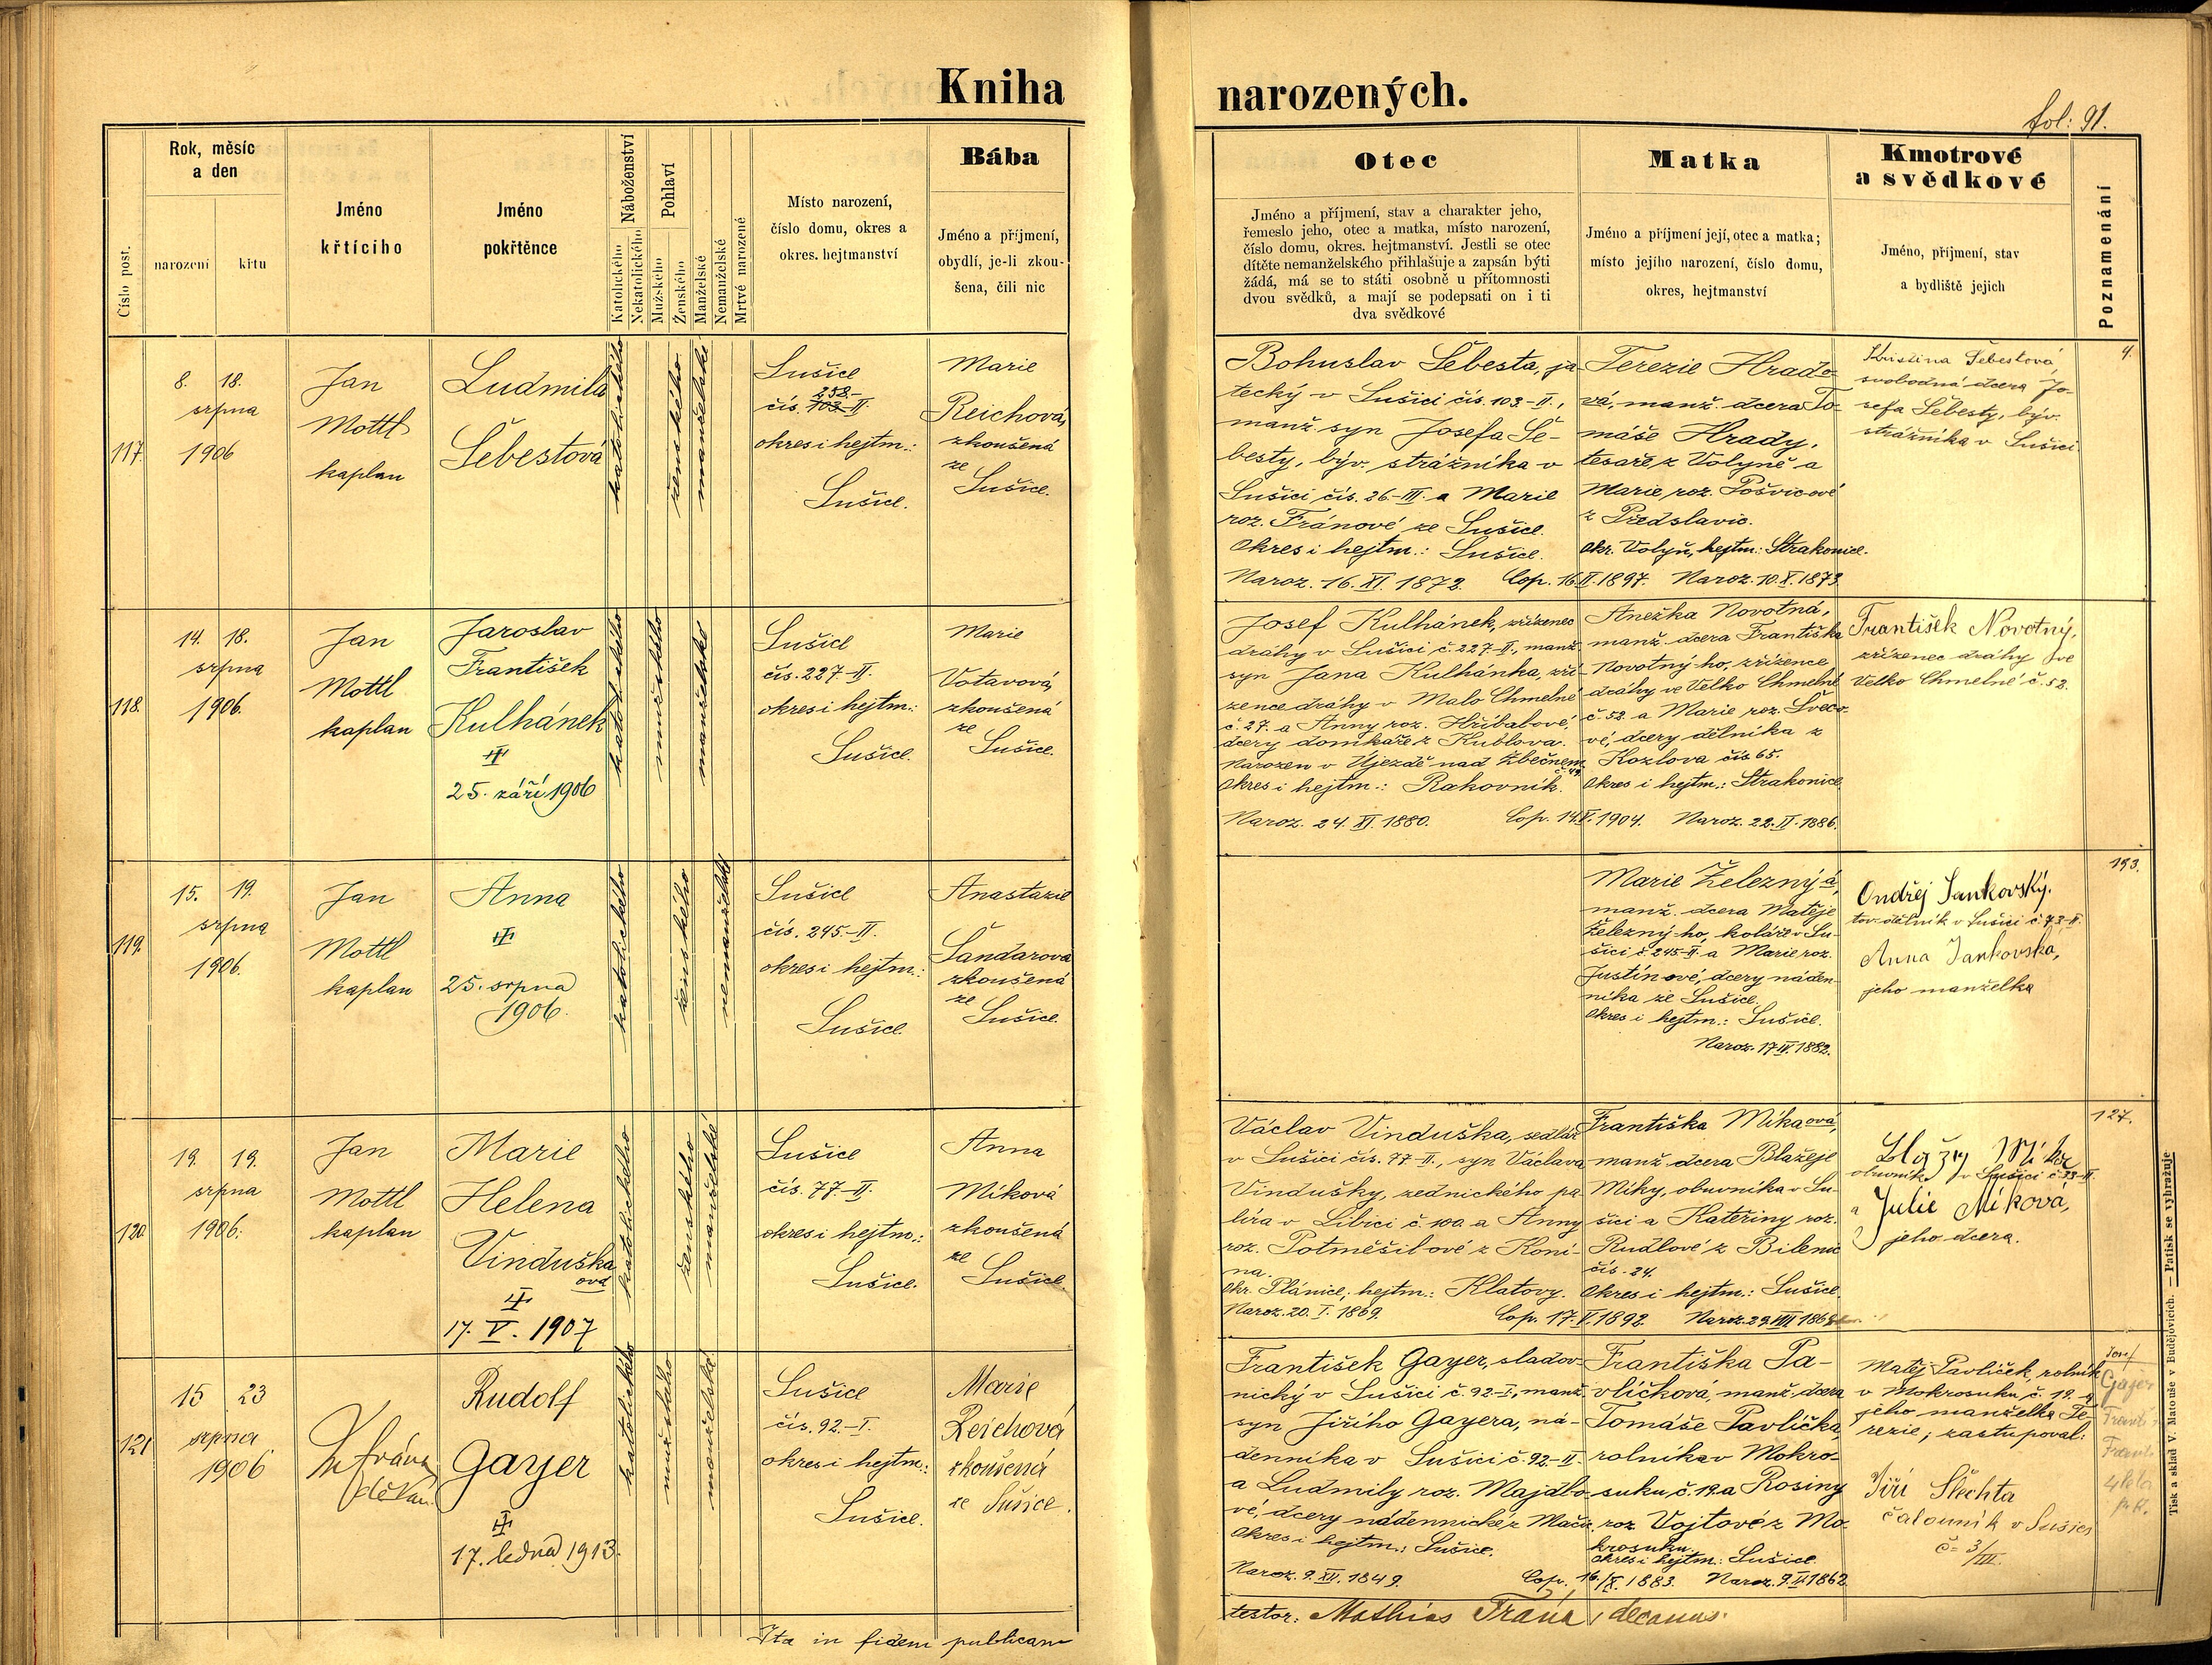 Kniha
narozených.
fol: 91.
Číslo post.
Rok, měsíc
a den
narození
křtu
Jméno
křtícího
Jméno
pokřtěnce
Náboženství
Katolického
Nekatolického
Pohlaví
Mužského
Ženského
Manželské
Nemanželské
Mrtvě narozené
Místo narození,
číslo domu, okres a
okres. hejtmanství
Bába
Jméno a příjmení,
obydlí, je-li zkou-
šena, čili nic
Otec
Jméno a příjmení, stav a charakter jeho,
řemeslo jeho, otec a matka, místo narození,
číslo domu, okres. hejtmanství. Jestli se otec
dítěte nemanželského přihlašuje a zapsán býti
žádá, má se to státi osobně u přítomnosti
dvou svědků, a mají se podepsati on i ti
dva svědkové
Matka
Jméno a příjmení její, otec a matka;
místo jejího narození, číslo domu,
okres, hejtmanství
Kmotrové
a svědkové
Jméno, příjmení, stav
a bydliště jejich
Poznamenání
117.
8. 18.
srpna
1906
Jan
Mottl
kaplan
Ludmila
Šebestová
katolického
ženského
manželské
Sušice
258.-
čís. 103-II.
okres i hejtm.:
Sušice.
Marie
Reichová,
zkoušená
ze
Sušice.
Bohuslav Šebesta, ja-
tecký v Sušici čís. 103-II.,
manž. syn Josefa Še-
besty, býv. strážníka v
Sušici čís. 26-III. a Marie
roz. Fránové ze Sušice.
Okres i hejtm.: Sušice.
Naroz. 16. XI. 1872. Cop. 16. II. 1897.
Terezie Hrado-
vá, manž. dcera To-
máše Hrady,
tesaře z Volyně a
Marie roz. Pošvicové
z Předslavic.
Okr. Volyň, hejtm.: Strakonice.
Naroz. 10. X. 1873.
Kristina Šebestová,
svobodná dcera Jo-
sefa Šebesty, býv.
strážníka v Sušici.
4.
118.
14. 18.
srpna
1906.
Jan
Mottl
kaplan
Jaroslav
František
Kulhánek
25. září 1906
katolického
mužského
manželské
Sušice
čís. 227-II.
okres i hejtm.:
Sušice.
Marie
Votavová,
zkoušená
ze
Sušice.
Josef Kulhánek, zřízenec
dráhy v Sušici č. 227-II., manž.
syn Jana Kulhánka, zří-
zence dráhy v Malo Chmelné
č. 27. a Anny roz. Hříbalové,
dcery domkáře z Kublova.
Narozen v Újezdě nad Zbečnem
č. 49.
Okres i hejtm.: Rakovník.
Naroz. 24. XI. 1880. Cop. 14. V. 1904.
Anežka Novotná,
manž. dcera Františka
Novotný-ho, zřízence
dráhy ve Velko Chmelné
č. 52. a Marie roz. Šveco-
vé, dcery dělníka z
Kozlova čís. 65.
Okres i hejtm.: Strakonice.
Naroz. 22. II. 1886.
František Novotný,
zřízenec dráhy ve
Velko Chmelné č. 52.
119.
15. 19.
srpna
1906.
Jan
Mottl
kaplan
Anna
25. srpna
1906.
katolického
ženského
nemanželské
Sušice
čís. 245.-II.
okres i hejtm.:
Sušice.
Anastazie
Šandarová
zkoušená
ze
Sušice.
Marie Železný-á,
manž. dcera Matěje
Železný-ho, koláře v Su-
šici č. 245-II. a Marie roz.
Justínové, dcery náden-
níka ze Sušice.
Okres i hejtm.: Sušice.
Naroz. 17. IV. 1882.
Ondřej Jankovský.
tov. dělník v Sušici č. 73-II.
Anna Jankovská,
jeho manželka
193.
120.
19. 19.
srpna
1906.
Jan
Mottl
kaplan
Marie
Helena
Vinduška
ová
17. V. 1907
katolického
ženského
manželské
Sušice
čís. 77-II.
okres i hejtm.:
Sušice.
Anna
Míková
zkoušená
ze
Sušice.
Václav Vinduška, sedlář
v Sušici čís. 77-II., syn Václava
Vindušky, zednického pa-
líra v Libici č. 100. a Anny
roz. Potměšilové z Koní-
na.
Okr. Plánice, hejtm.: Klatovy.
Naroz. 20. I. 1869. Cop. 17. V. 1892.
Františka Míkaová,
manž. dcera Blažeje
Míky, obuvníka v Su-
šici a Kateřiny roz.
Rudlové z Bilenic
čís. 24.
Okres i hejtm.: Sušice.
Blažej Míka
obuvník v Sušici č. 73-II.
a Julie Míkova,
jeho dcera.
127.
121.
15 23
srpna
1906
děkan.
Rudolf
Gayer
17. ledna 1913.
katolického
mužského
manželské
Sušice
čís. 92.-I.
okres i hejtm.:
Sušice.
Marie
Reichová
zkoušená
ze Sušice.
František Gayer, sladov-
nický v Sušici č. 92-I., manž.
syn Jiřího Gayera, ná-
denníka v Sušici č. 92-II.
a Ludmily roz. Majdlo-
vé, dcery nádennické z
Okres i hejtm.: Sušice.
Naroz. 9. XII. 1849. Cop. 16./X. 1883.
Františka Pa-
vlíčková, manž. dcera
Tomáše Pavlíčka,
rolníka v Mokro-
suku č. 19. a Rosiny
roz. Vojtové z Mo-
krosuku.
Okres i hejtm.: Sušice.
Matěj Pavlíček, rolník
v Mokrosuku č. 19. a
jeho manželka Te-
rezie; zastupoval:
Jiří Šlechta
čalouník v Sušici
č. 3/III.
Josef
Gayer
Ita in fidem publicam
testor: Mathias Frána, decanus.
Tisk a sklad V. Matouše v Budějovicích. — Patisk se vyhražuje